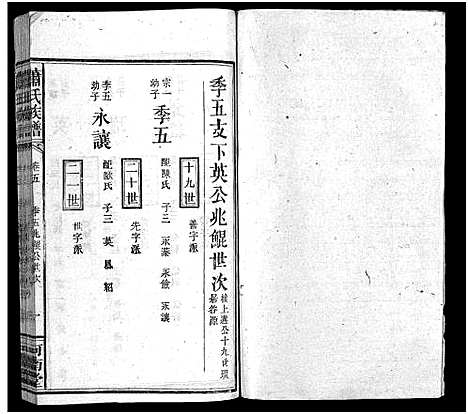 季五支下英公兆鯤世次
接上選公十九世環
十九世
善字派
宗一
幼子
季五
配陳氏 子三 永泰 永儉 永讓
二十世
先字派
季五
幼子
永讓
配歐氏 子三 英 昆 紹
二一世
世字派
蕭氏族譜
卷五